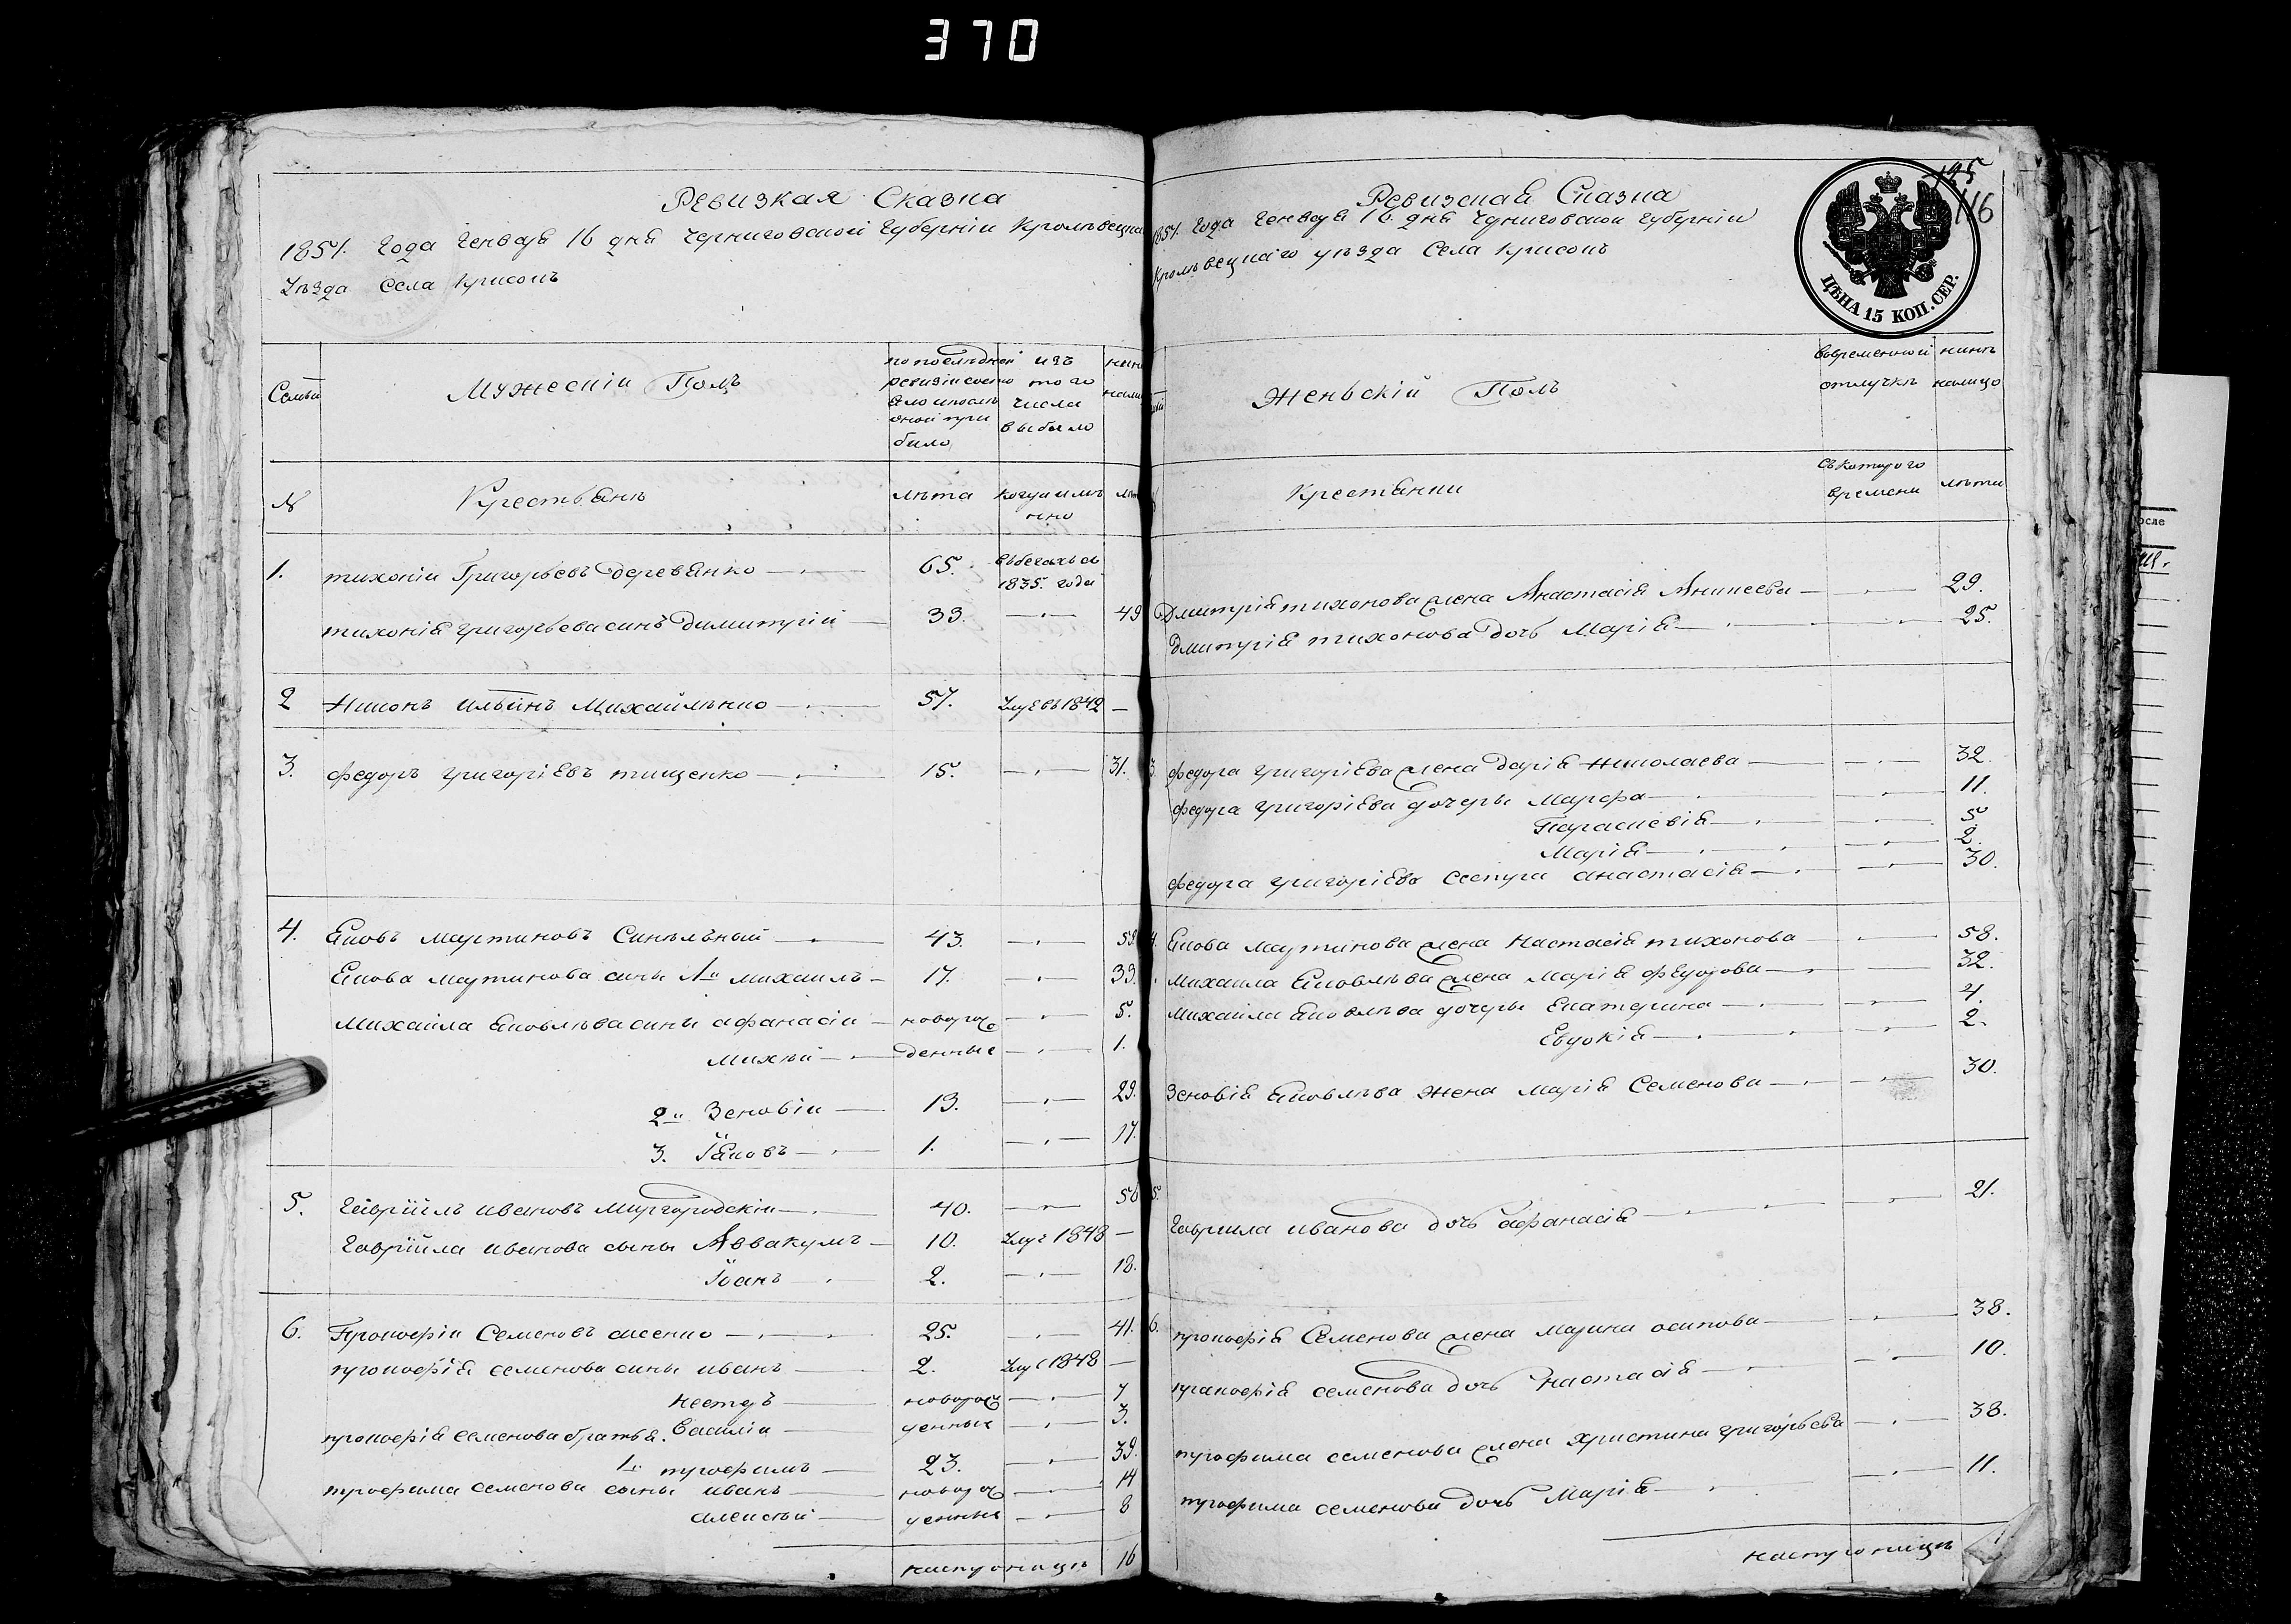 370
Ревизкая Сказка
1851. Года Генваря 16 дня Черниговской Губернии Кролѣвецка
Уѣзда Села Крисокъ
Семьи
Мужескій Полъ
по послѣдней
ревизіи состо
яло и послѣ
оной при
было
изъ
того
числа
выбыло
нын
нали
№
Крестьянѣ
лѣта
когда имѣ
нно
лѣт
1. тихоній Григорьевъ деревянко 65. въ бегахъ съ
1835. года
тихонія григорьева синъ димитрій 33. 49
2 Никонъ ильинъ Михайлѣнко 57. Умре въ 1842
3. федоръ григоріевъ тищенко 15. 31.
4. Яковъ мартиновъ Синѣлъный 43. 59
Якова мартинова сины 1й михаилъ 17. 33.
михаила яковлѣва сины афанасіи новорож 5.
михѣй денные 1.
2й Зеновіи 13. 29.
3. Іяковъ 1. 17.
5. Гаврійлъ ивановъ миргородскіи 40. 56
Гаврійла иванова сыны Аввакумъ 10. Умре 1848
Іоанъ 2. 18.
6. Прокофіи Семеновъ асенко 25. 41.
прокофія семенова сины иванъ 2. Умре 1848
нестеръ новорож 7
Василіи денные 3.
прокофія семенова братья.
1й трофимъ 23. 39.
трофима семенова сыны иванъ новорож 14
алексѣй денные 8
на страницѣ 16
Ревизская Сказка
1851. Года Генваря 16. дня Черниговской Губерніи
Кролѣвецкаго уѣзда Села Крисокъ
125
116
ЦѢНА 15 КОП. СЕР.
Женьскій Полъ
во временной
отлучкѣ
нинѣ
налицо
Крестянки
съ котораго
времени
лѣта
Дмитрія тихонова жена Анастасія Аникеева 29.
Дмитрія тихонова дочь Марія 25.
3. федора григоріева жена дарія николаева 32.
федора григоріева дочеры Марфа 11.
Параскевія 5
Марія 2.
федора григоріева сестра анастасія 30.
4. Якова мартинова жена настасія тихонова 58.
михаила яковлѣва жена Марія федорова 32.
михайла яковлѣва дочеры екатерина 4.
Евдокія 2.
Зеновія яковлѣва жена марія Семенова 30.
5. Гаврила иванова дочь афанасія 21.
6. прокофія Семенова жена марина осипова 38.
пракофія семенова дочь настасія 10.
трофима семенова жена христина григорьева 38.
трофима семенова дочь Марія 11.
на страницѣ